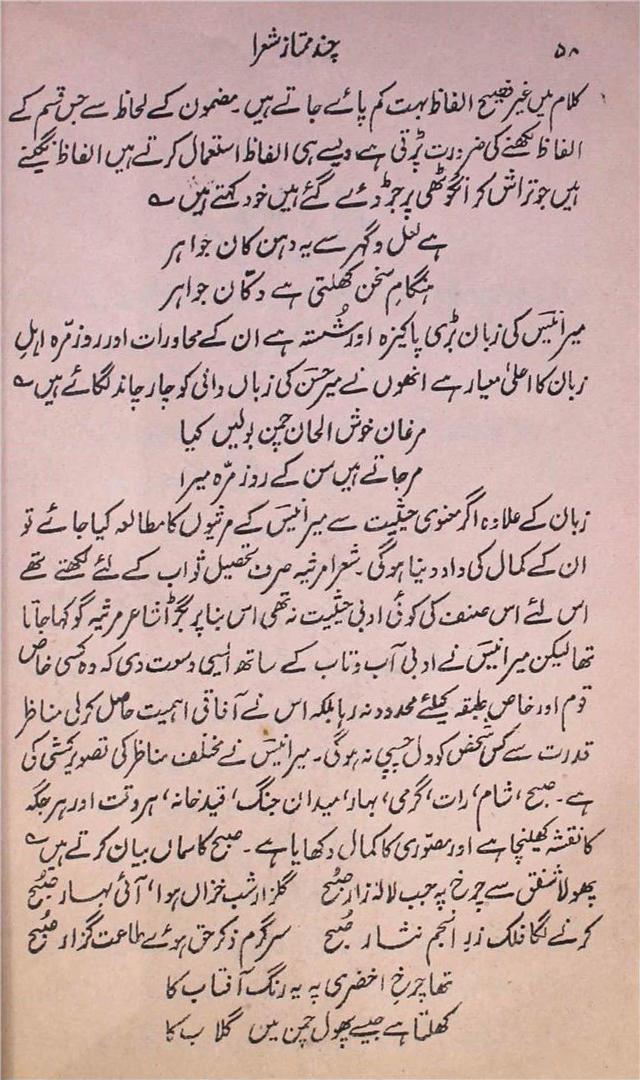 ۵۸ چند ممتاز شعرا
کلام میں غیر فصیح الفاظ بہت کم پائے جاتے ہیں۔ مضمون کے لحاظ سے جس قسم کے
الفاظ لکھنے کی ضرورت پڑتی ہے ویسے ہی الفاظ استعمال کرتے ہیں الفاظ نگینے
ہیں جو تراش کر انگوٹھی پر جڑ دئے گئے ہیں خود کہتے ہیں ؎
ہے لعل و گہر سے یہ دہن کان جواہر
ہنگامِ سخن کھلتی ہے دکان جواہر
میر انیسؔ کی زبان بڑی پاکیزہ اور شُستہ ہے ان کے محاورات اور روزمّرہ اہلِ
زبان کا اعلیٰ معیار ہے انھوں نے میر حسنؔ کی زباں دانی کو چار چاند لگائے ہیں ؎
مرغان خوش الحان چمن بولیں کیا
مر جاتے ہیں سن کے روزمّرہ میرا
زبان کے علاوہ اگر معنوی حیثیت سے میر انیسؔ کے مرثیوں کا مطالعہ کیا جائے تو
ان کے کمال کی داد دینا ہوگی۔ شعرا مرثیہ صرف تحصیل ثواب کے لئے لکھتے تھے
اس لئے اس صنف کی کوئی ادبی حیثیت نہ تھی اس بنا پر بگڑا شاعر مرثیہ گو کہا جاتا
تھا لیکن میر انیسؔ نے ادبی آب و تاب کے ساتھ ایسی وسعت دی کہ وہ کسی خاص
قوم اور خاص طبقہ کیلئے محدود نہ رہا بلکہ اس نے آفاقی اہمیت حاصل کر لی مناظر
قدرت سے کس شخص کو دل چسپی نہ ہوگی۔ میر انیسؔ نے مختلف مناظر کی تصویر کشی کی
ہے۔ صبح، شام، رات، گرمی، بہار، میدان جنگ، قید خانہ، ہر وقت اور ہر جگہ
کا نقشہ کھینچا ہے اور مصوّری کا کمال دکھایا ہے۔ صبح کا سماں بیان کرتے ہیں ؎
پھولا شفق سے چرخ پہ جب لالہ زار صُبح گلزارِ شب خزاں ہوا، آئی بہار صُبح
کرنے لگا فلک زرِ انجم نثار صُبح سرگرم ذکر حق ہوئے طاعت گزار صُبح
تھا چرخِ اخضری پہ یہ رنگ آفتاب کا
کھلتا ہے جیسے پھول چمن میں گلاب کا